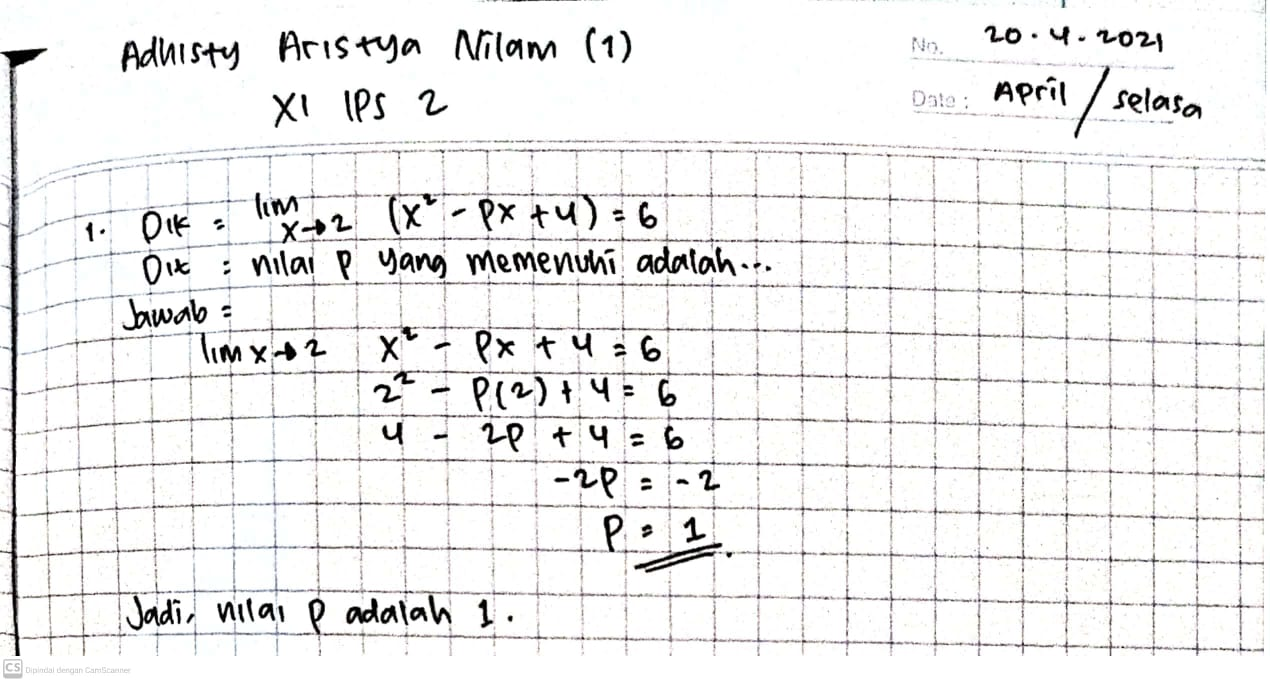 Adhisty Aristya Nilam (1)
XI IPS 2
No. 20.4.2021
Date: April / selasa
1. Dik = lim x→2 (x² - px + 4) = 6
Dit : nilai p yang memenuhi adalah...
Jawab =
lim x→2 x² - px + 4 = 6
2² - P(2) + 4 = 6
4 - 2p + 4 = 6
-2p = -2
P = 1.
Jadi, nilai p adalah 1.
CS Dipindai dengan CamScanner